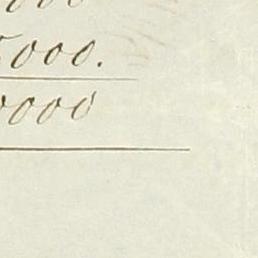 000
5000.
0000